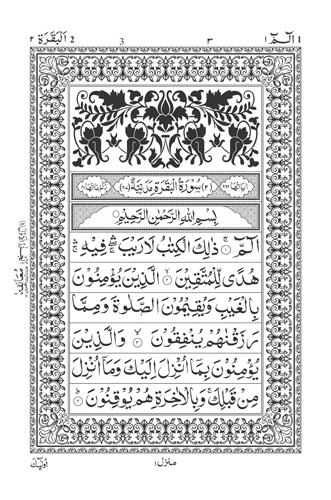 الٓمّٓ ١ 1 ٣ 3 اَلْبَقَرَة ٢ 2
(٢) سُوْرَةُ الْبَقَرَةِ مَدَنِيَّةٌ
بِسْمِ اللّٰهِ الرَّحْمٰنِ الرَّحِيْمِ
الٓمّٓ ۚ ذٰلِكَ الْكِتٰبُ لَا رَيْبَ ۛ فِيْهِ ۛ
هُدًى لِّلْمُتَّقِيْنَ ۙ الَّذِيْنَ يُؤْمِنُوْنَ
بِالْغَيْبِ وَيُقِيْمُوْنَ الصَّلٰوةَ وَمِمَّا
رَزَقْنٰهُمْ يُنْفِقُوْنَ ۙ وَالَّذِيْنَ
يُؤْمِنُوْنَ بِمَآ اُنْزِلَ اِلَيْكَ وَمَآ اُنْزِلَ
مِنْ قَبْلِكَ ۚ وَبِالْاٰخِرَةِ هُمْ يُوْقِنُوْنَ ؕ
اُولٰٓئِكَ
منزل ١